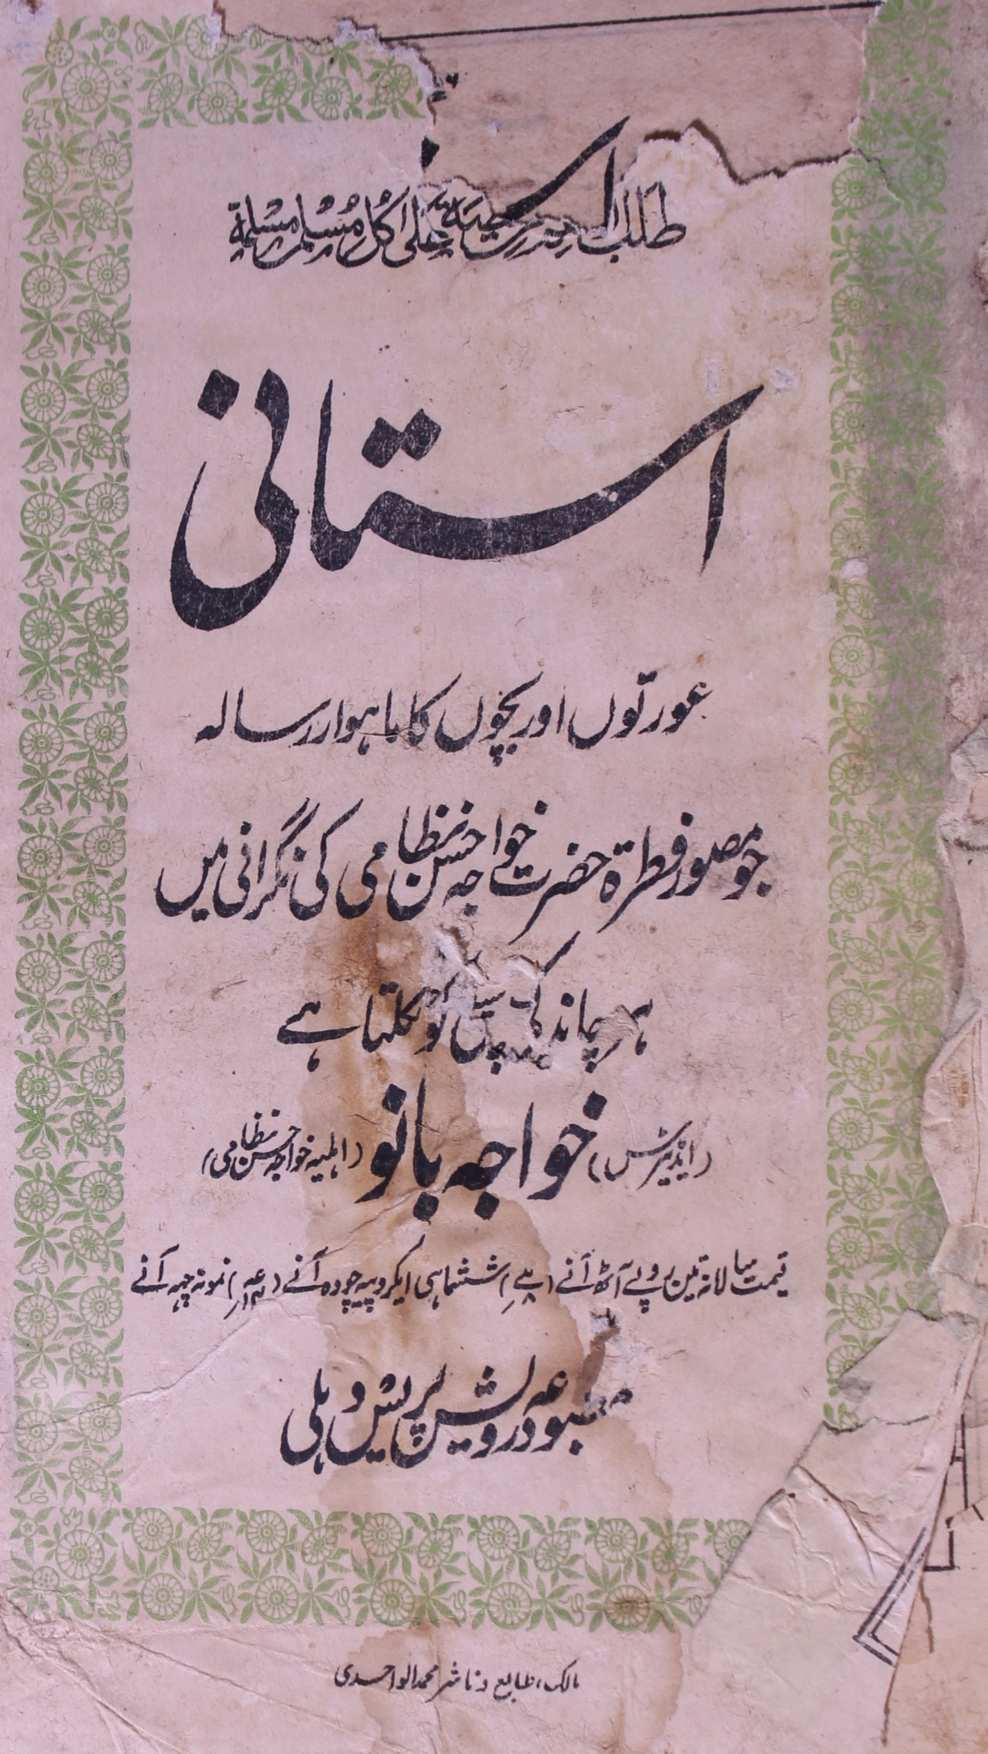 طلب العلم فریضۃ علیٰ کل مسلم مسلمۃ
استانی
عورتوں اور بچوں کا ماہوار رسالہ
جو مصور فطرۃ حضرت خواجہ حسن نظامی کی نگرانی میں
ہر چاند کی کو نکلتا ہے
(ایڈیٹرس) خواجہ بانو (اہلیہ خواجہ حسن نظامی)
قیمت سالانہ تین روپے آٹھ آنے ششماہی ایکروپیہ چودہ آنے نمونہ چہہ آنے
مطبوعہ درویش پریس دہلی
مالک، طابع و ناشر محمد الواحدی